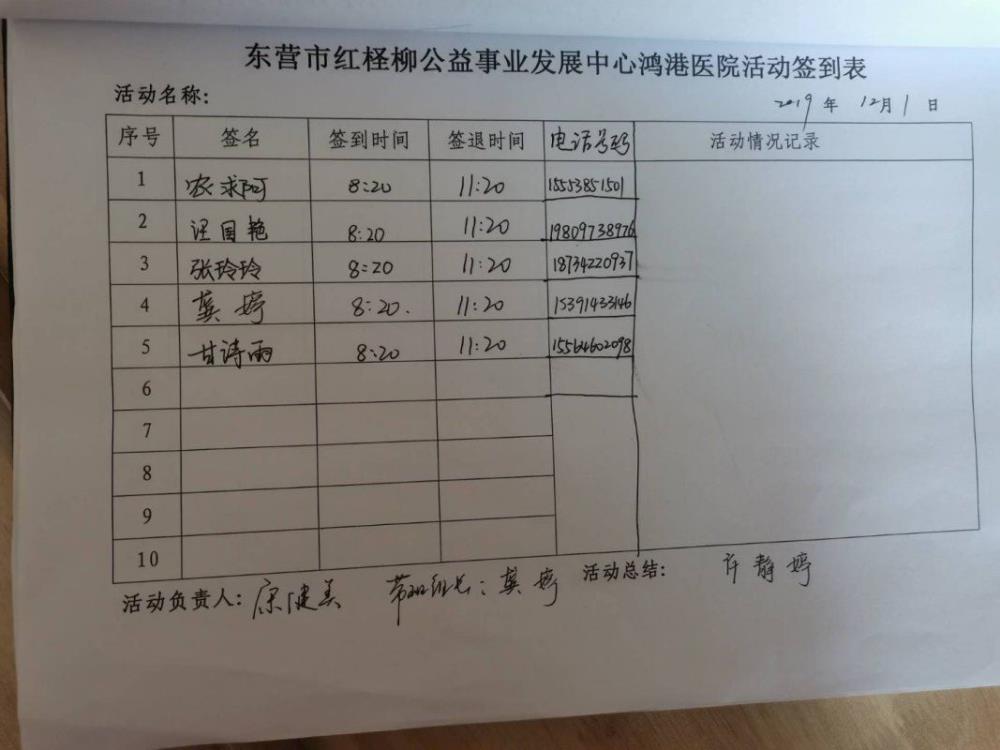 东营市红柽柳公益事业发展中心鸿港医院活动签到表
活动名称:
2019年 12月1日
序号 签名 签到时间 签退时间 电话号码 活动情况记录
1 农求阿 8:20 11:20 15553851501
2 汪国艳 8:20 11:20 19809738926
3 张玲玲 8:20 11:20 18734220937
4 龚婷 8:20. 11:20 15391433146
5 甘诗雨 8:20 11:20 15564602098
6
7
8
9
10
活动负责人: 康健美 带班组长: 龚婷 活动总结: 许静婷